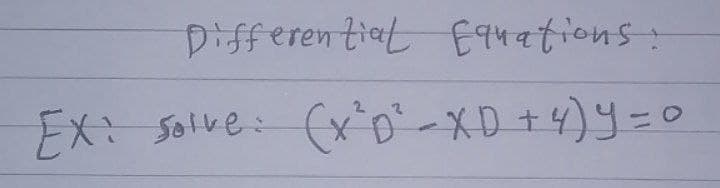 Differential Equations:
EX: solve: (x²D² - XD + 4)y = 0